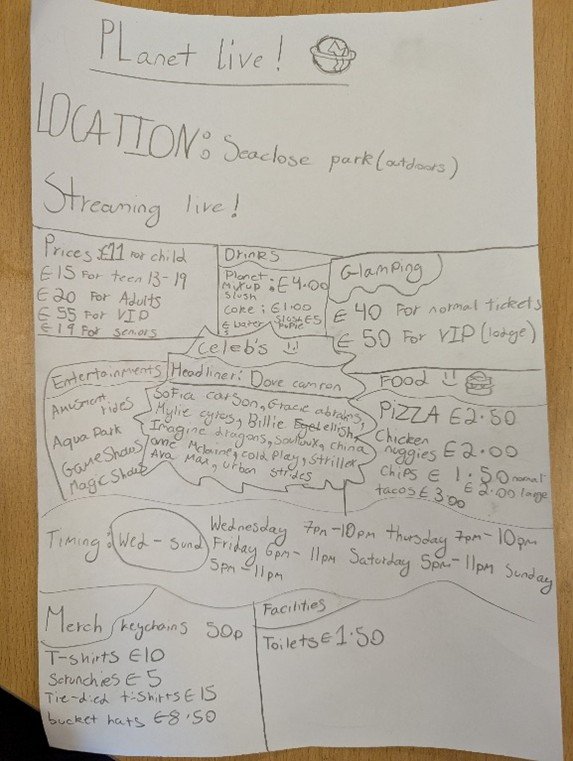 PLanet live!
LOCATION: Seaclose park (outdoors)
Streaming live!
Prices £11 for child
£15 For teen 13-19
£20 For Adults
£55 For VIP
£19 For seniors
Drinks
Planet
Mixup
slush : £4.00
Coke : £1.00
Glamping
£40 For normal tickets
£50 For VIP (lodge)
Celeb's
Headliner: Dove camron
Sofia carson, Gracie abrams,
Mylie cyrus, Billie Eyelellish,
Imagine dragons, china
anne Mclaine, cold play,
Ava Max, urban strides
Entertainments
Amusment
rides
Aqua Park
Game Shows
Magic Shows
FOOD
PIZZA £2.50
Chicken
nuggies £2.00
chips £1.50 normal
£2.00 large
tacos £3.00
Timing: Wed - sund
Wednesday 7pm-10pm thursday 7pm-10pm
Friday 6pm-11pm Saturday 5pm-11pm Sunday
5pm-11pm
Merch keychains 50p
T-shirts £10
Scrunchies £5
Tie-died t-shirts £15
bucket hats £8.50
Facilities
Toilets £1.50